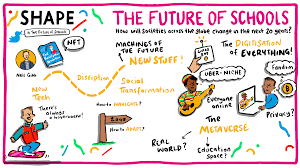 SHAPE
THE FUTURE OF SCHOOLS
How will societies across the globe change in the next 20 years?
NFT
MACHINES
OF THE FUTURE
NEW STUFF!
The DIGITISATION
OF EVERYTHING!
Neil Gibb
Disruption
Social
Transformation
UBER-NICHE
Fandom
New
Tech
There's
always
a honeymoon!
How to NAVIGATE?
How to ADAPT?
Everyone
online
Privacy?
The
METAVERSE
REAL
WORLD?
Education
space?